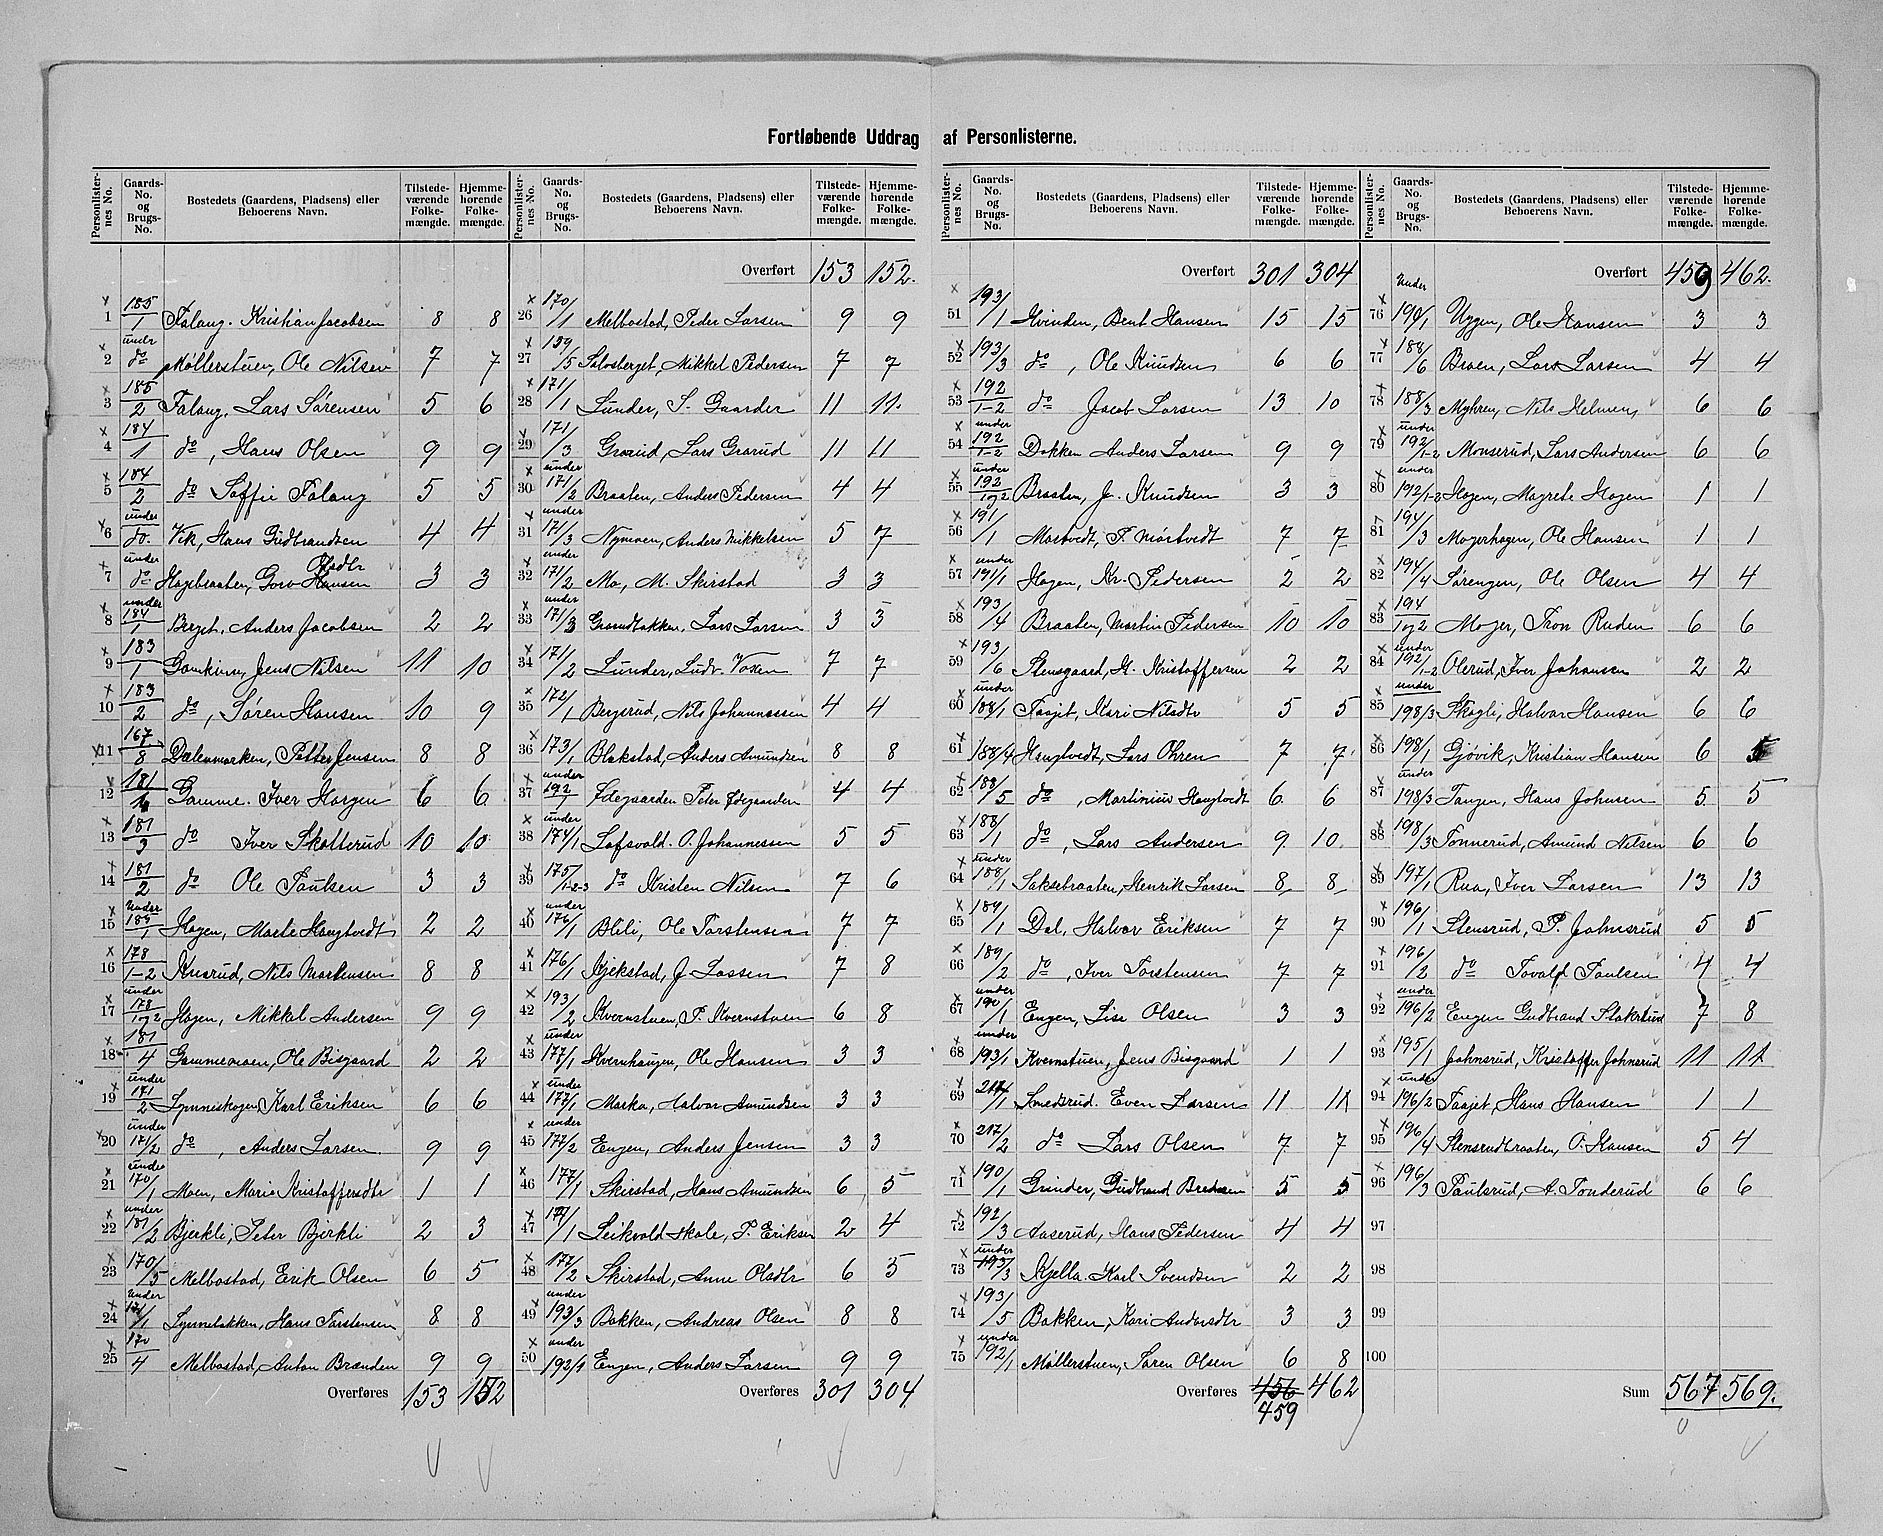 Fortløbende Uddrag af Personlisterne.
Personlisternes No. Gaards-No. og Brugs-No. Bostedets (Gaardens, Pladsens) eller Beboerens Navn. Tilstedeværende Folkemængde. Hjemmehørende Folkemængde.
1 185/1 Falang. Kristian Jacobsen 8 8
2 under do Møllerstuen, Ole Nilsen 7 7
3 185/2 Falang, Lars Sørensen 5 6
4 184/1 do, Hans Olsen 9 9
5 184/2 do Soffie Falang 5 5
6 under do. Vik, Hans Gudbrandsen 4 4
7 under do Hagebraaten, Goro Olsdtr 3 3
8 under 184/1 Berget, Anders Jacobsen 2 2
9 183/1 Gamkinn, Jens Nilsen 11 10
10 183/2 do, Søren Hansen 10 9
11 167/8 Dælenmarken, Petter Jensen 8 8
12 181/1 Gamme. Iver Horgen 6 6
13 181/3 do Iver Skotterud 10 10
14 181/2 do Ole Paulsen 3 3
15 Under 185/1 Hagen, Marte Haugtvedt 2 2
16 178/1-2 Knerud, Nils Martinsen 8 8
17 under 178/1og2 Hagen, Mikkel Andersen 9 9
18 181/4 Gammemoen, Ole Bisgaard 2 2
19 under 171/2 Lynneshagen Karl Eriksen 6 6
20 under 171/2 do, Anders Larsen. 9 9
21 under 170/1 Moen, Marie Kristoffersdtr 1 1
22 under 181/2 Bjerkli, Peter Bjerkli 2 3
23 170/5 Melbostad, Erik Olsen 6 5
24 Under 171/1 Lynnebakken, Hans Torstensen 8 8
25 170/4 Melbostad, Anton Brænden 9 9
Overføres 153 152
Personlisternes No. Gaards-No. og Brugs-No. Bostedets (Gaardens, Pladsens) eller Beboerens Navn. Tilstedeværende Folkemængde. Hjemmehørende Folkemængde.
Overført 153 152.
26 170/1 Melbostad, Peder Larsen 9 9
27 159/5 Solosberget, Mikkel Pedersen 7 7
28 171/1 Lunder, S. Gaarder 11 11.
29 171/3 Grorud, Lars Grorud 11 11
30 under 171/2 Braaten, Anders Pedersen 4 4
31 under 171/3 Nymoen, Anders Mikkelsen 5 7
32 under 171/2 Mo, M. Skirstad 3 3
33 under 171/3 Grorudbakken. Lars Larsen 3 5
34 171/2 Lunder, Ludv. Voxen 7 7
35 172/1 Bergerud, Nils Johannessen 4 4
36 173/1 Blakstad, Anders Amundsen 8 8
37 under 192/1 Ødegaarden Peter Ødegaarden 4 4
38 under 174/1 Lofsvold. O. Johannessen 5 5
39 175/1-2-3 do Kristen Nilsen 7 6
40 under 176/1 Blili, Ole Torstensen 7 7
41 176/1 Kjekstad, J. Lassen 7 8
42 193/2 Kvernstuen, P. Kvernstuen 6 8
43 under 177/1 Kvernhaugen, Ole Hansen 3 3
44 under 177/1 Marka, Halvor Amundsen 3 3
45 under 177/2 Engen, Anders Jensen 3 3
46 177/1 Skirstad, Hans Amundsen 6 5
47 174/1 Leikvold skole, P. Eriksen 2 4
48 177/2 Skirstad, Anne Olsdtr 6 5
49 under 193/3 Bakken, Andreas Olsen 8 8
50 under 192/1 Engen, Anders Larsen 9 9
Overføres 301 304
Personlisternes No. Gaards-No. og Brugs-No. Bostedets (Gaardens, Pladsens) eller Beboerens Navn. Tilstedeværende Folkemængde. Hjemmehørende Folkemængde.
Overført 301 304
51 193/1 Hvinden, Bent Hansen 15 15
52 193/3 do, Ole Knudsen 6 6
53 192/1-2 do Jacob Larsen 13 10
54 under 192/1-2 Dokken Anders Larsen 9 9
55 under 192/1og2 Braaten, Jo. Knudsen 3 3
56 191/1 Mortvedt, P. Mortvedt 7 7
57 under 191/1 Hagen, Kr. Pedersen 2 2
58 193/4 Braaten, Martin Pedersen 10 10
59 193/6 Stensgaard, H. Kristoffersen 2 2
60 under 188/1 Faajet, Kari Nilsdtr 5 5
61 188/4 Haugtvedt, Lars Ohren 7 7
62 188/5 do, Martinius Haugtvedt 6 6
63 188/1 do, Lars Andersen 9 10
64 under 188/1 Saksebraaten, Henrik Larsen 8 8
65 189/1 Dal, Halvor Eriksen 7 7
66 189/2 do, Iver Torstensen 7 7
67 under 190/1 Engen, Lise Olsen 3 3
68 under 193/1 Kvernstuen, Jens Bisgaard 1 1
69 217/1 Smedsrud. Even Larsen 11 11
70 217/2 do Lars Olsen 7 7
71 190/1 Grinder, Gudbrand Bredesen 5 5
72 192/3 Aaserud, Hans Pedersen 4 4
73 under 193/3 Kjella. Karl Svendsen 2 2
74 193/5 Bakken, Kari Andersdtr 3 3
75 under 192/1 Møllerstuen, Søren Olsen 6 8
Overføres 456 462
459
Personlisternes No. Gaards-No. og Brugs-No. Bostedets (Gaardens, Pladsens) eller Beboerens Navn. Tilstedeværende Folkemængde. Hjemmehørende Folkemængde.
Overført 459 462.
76 Under 194/1 Uggen, Ole Hansen 3 3
77 188/6 Braen, Lars Larsen 4 4
78 188/3 Myhren, Nils Helmen, 6 6
79 under 192/1-2 Monserud, Lars Andersen 6 6
80 under 192/1-2 Hagen, Magrete Hagen 1 1
81 194/3 Mogerhagen, Ole Hansen 1 1
82 194/4 Sørengen, Ole Olsen 4 4
83 194/1og2 Moger, Tron Ruden 6 6
84 under 192/1-2 Olerud, Iver Johansen 2 2
85 under 198/3 Skogli, Halvor Hansen 6 6
86 198/1 Gjøvik, Kristian Hansen 6 5
87 under 198/3 Tangen, Hans Johnsen 5 5
88 198/3 Tonnerud, Amund Nilsen 6 6
89 197/1 Rua, Iver Larsen 13 13
90 196/1 Stensrud, P. Johnsrud 5 5
91 196/2 do Tovald Paulsen 4 4
92 under 196/2 Engen Gudbrand Stakstrud 7 8
93 195/1 Johnsrud, Kristoffer Johnsrud 11 11
94 under 196/2 Faajet, Hans Hansen 1 1
95 196/4 Stensrudbraaten, O. Hansen 5 4
96 196/3 Paulsrud, A. Tonderud 6 6
97
98
99
100
Sum 567 569.